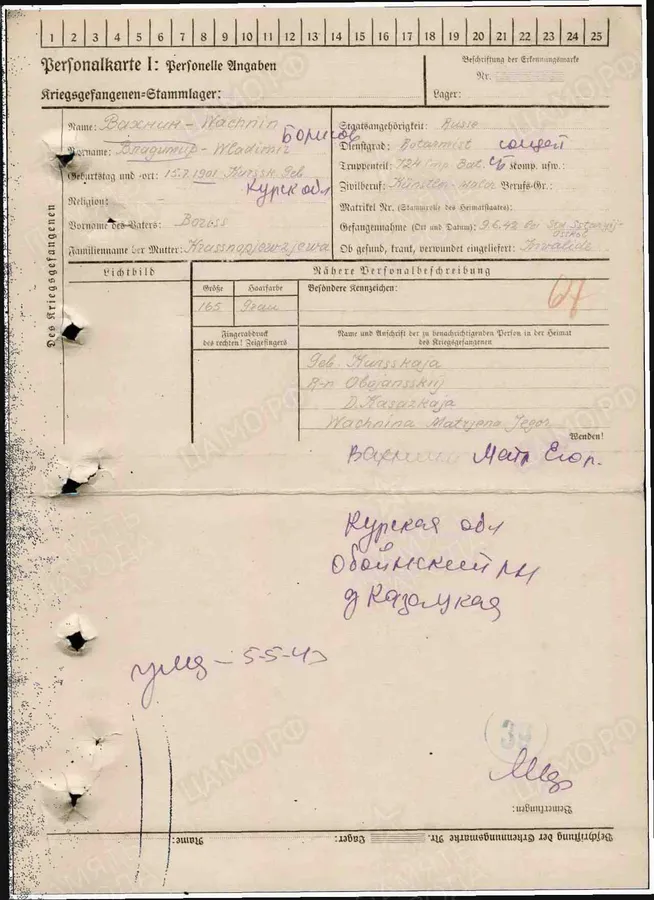 1 2 3 4 5 6 7 8 9 10 11 12 13 14 15 16 17 18 19 20 21 22 23 24 25
Personalkarte I: Personelle Angaben
Beschriftung der Erkennungsmarke
Nr.
Kriegsgefangenen-Stammlager:
Lager:
Des Kriegsgefangenen
Name: Вахнин - Wachnin
Борисов
Vorname: Владимир - Wladimir
Geburtstag und -ort: 15.7.1901 Kurssk. Geb
Курск обл
Religion:
Vorname des Vaters: Boross
Familienname der Mutter: Krassnopjewzjewa
Staatsangehörigkeit: Russe
Dienstgrad: Rotarmist
Truppenteil: 724 Bat. Komp. usw.:
Zivilberuf: Künstler-Maler Berufs-Gr.:
Matrikel Nr. (Stammrolle des Heimatstaates):
Gefangennahme (Ort und Datum): 9.6.42 bei
Ob gesund, krank, verwundet eingeliefert: Invalide
Lichtbild
Nähere Personalbeschreibung
Größe
Haarfarbe
Besondere Kennzeichen:
165
Grau
Fingerabdruck
des rechten! Zeigefingers
Name und Anschrift der zu benachrichtigenden Person in der Heimat
des Kriegsgefangenen
Geb. Kursskaja
R-n Obojansskij
D. Kasazkaja
Wachnina Matrjena Jegor
Wenden!
Вахнина Матр Егор.
Курская обл
Обоянский рн
д Казацкая
умер - 5-5-43
39
Bemerkungen:
Beschriftung der Erkennungsmarke Nr.
Lager:
Name:
ЦАМО РФ
ПАМЯТЬ НАРОДА